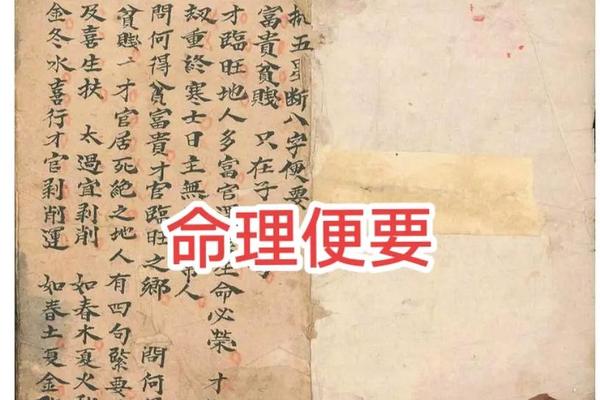 五斷八字便要
富貴貧賤 只在子
才臨旺地人多富官命必榮 才
劫重終寒士日主無人
問何得貧富貴才官臨旺之鄉 問何
貧賤才官居死絕之地人有四句緊要
及喜生扶 太過宜剥削 如春木夏火
金冬水喜行才官剥削運 如春土夏金
命理便要